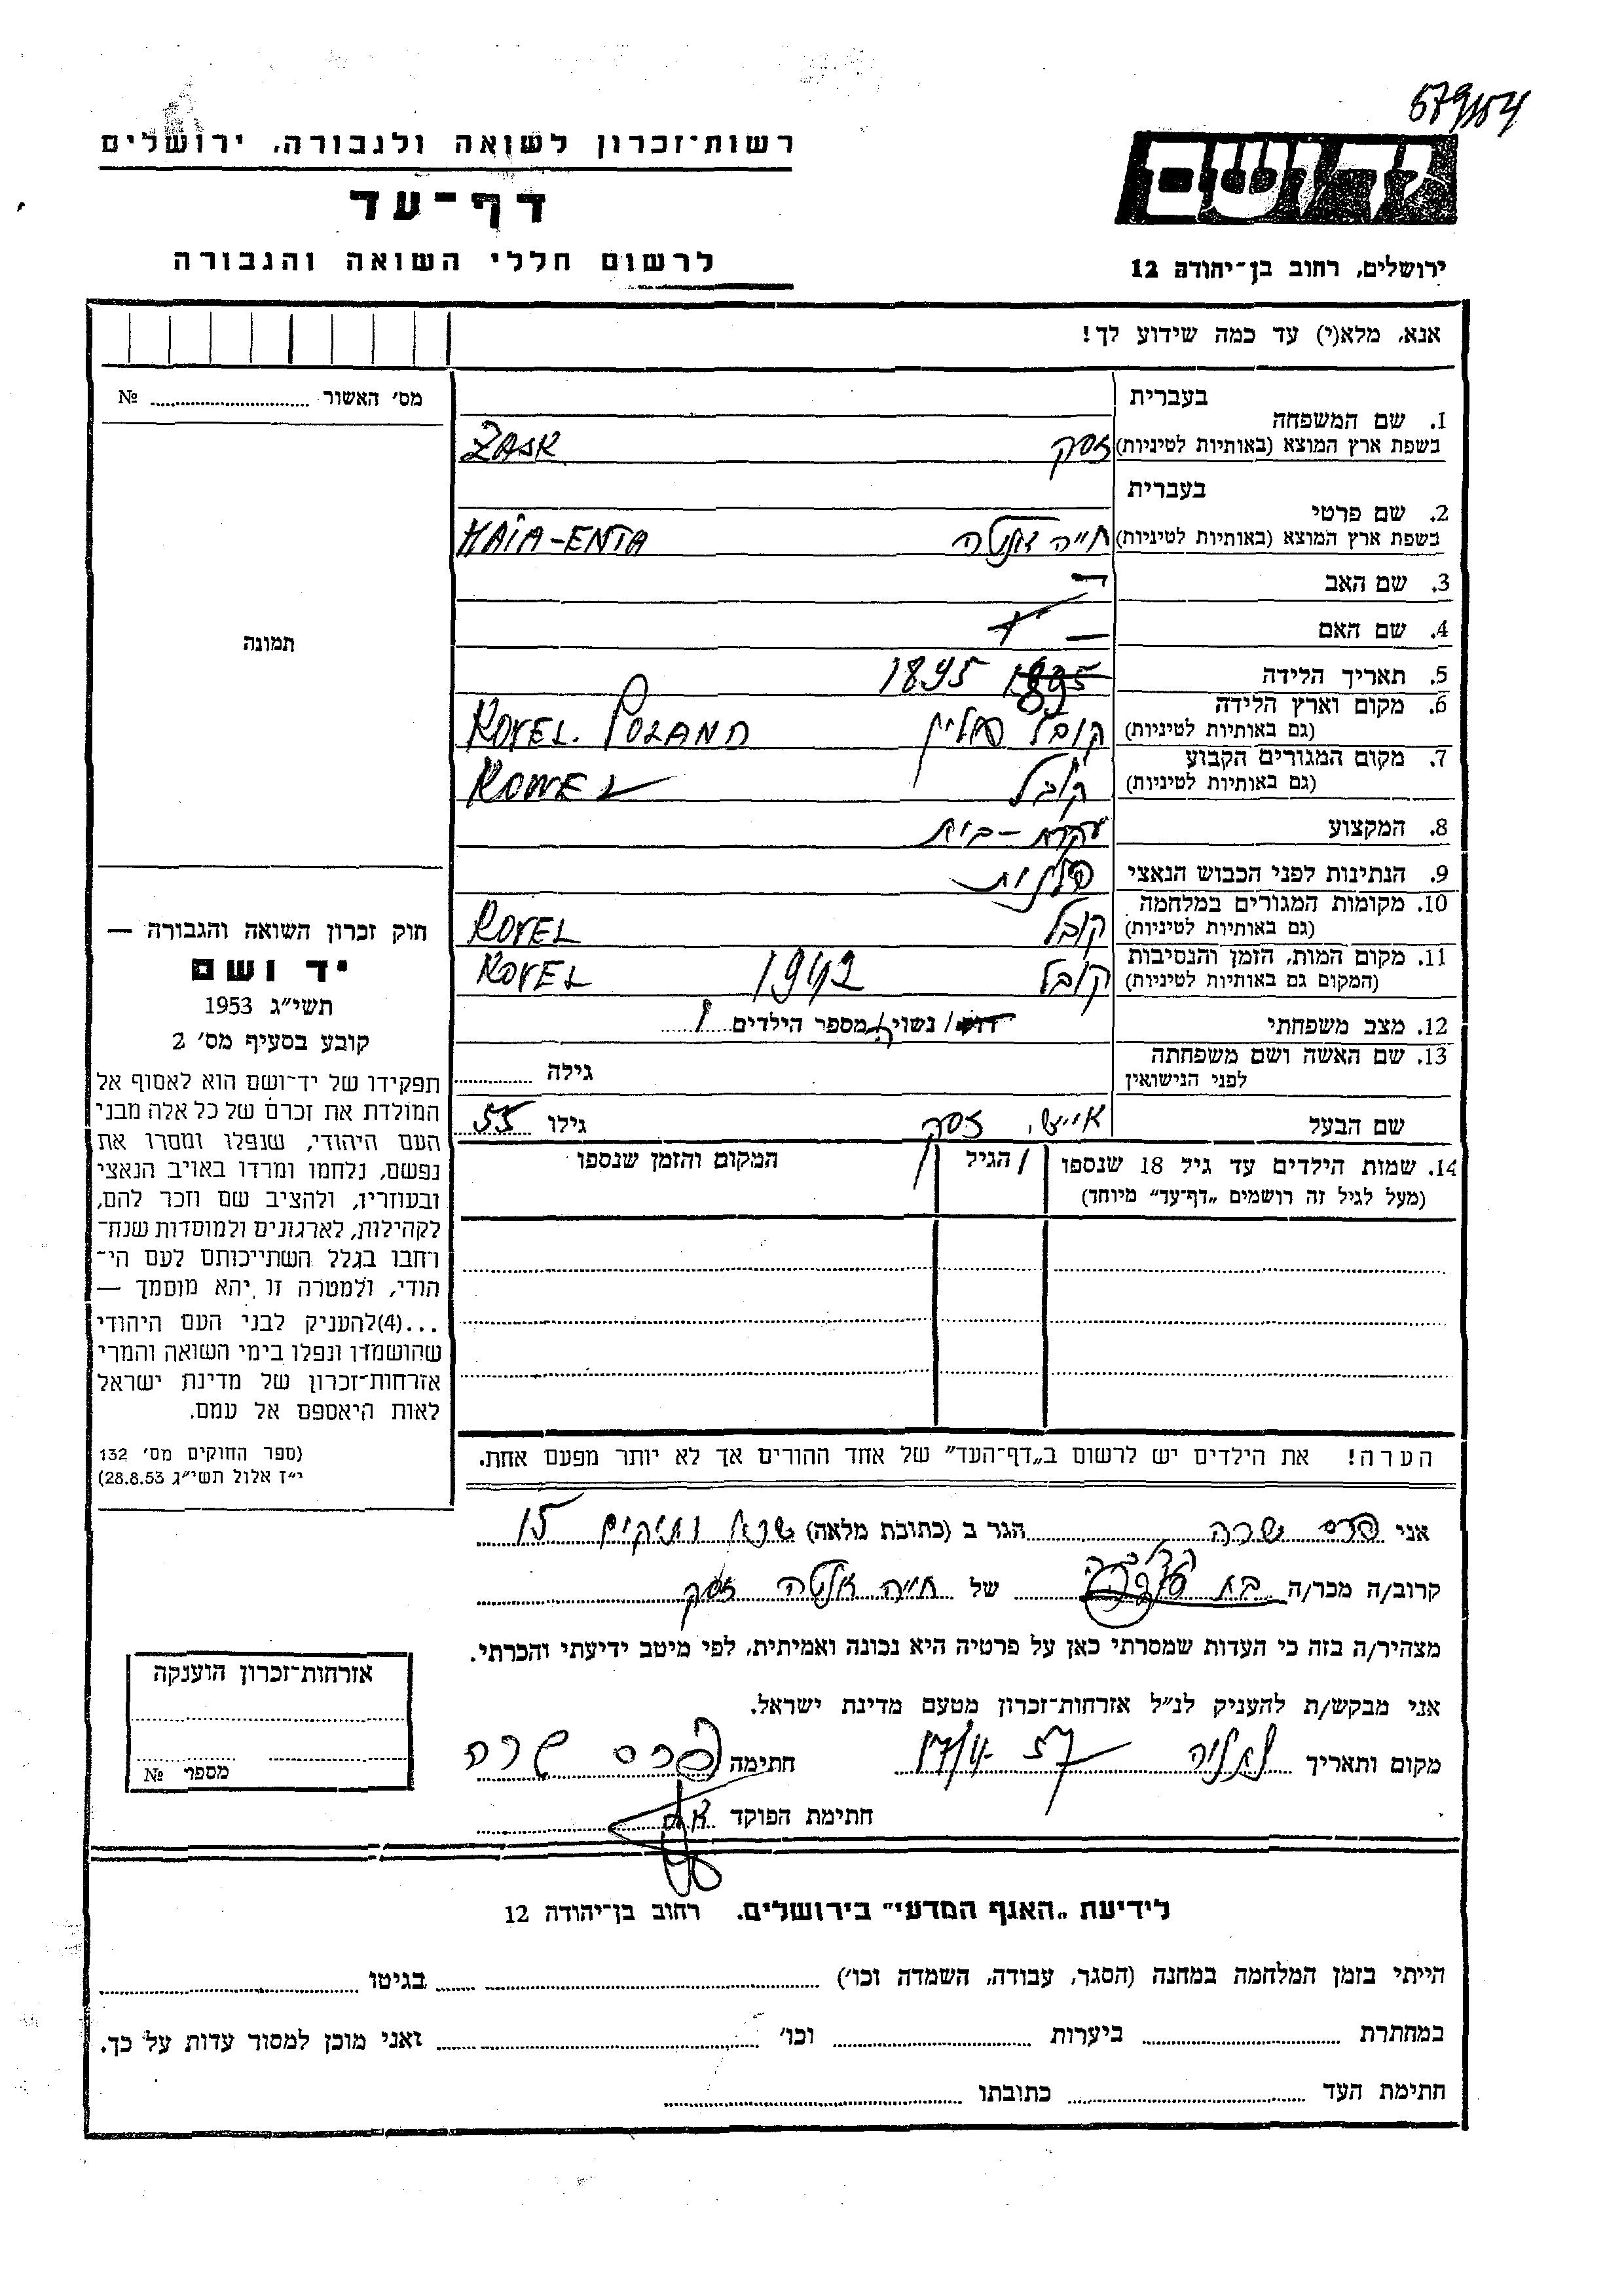 679/154
רשות-זכרון לשואה ולגבורה, ירושלים
דף-עד
לרשום חללי השואה והגבורה
יד ושם
ירושלים, רחוב בן-יהודה 12
אנא, מלא(י) עד כמה שידוע לך!
מס׳ האשור № 
תמונה
1. שם המשפחה
בעברית
בשפת ארץ המוצא (באותיות לטיניות) זסק ZASK
2. שם פרטי
בעברית
בשפת ארץ המוצא (באותיות לטיניות) חייה אנטה HAIA-ENTA
3. שם האב —
4. שם האם —
5. תאריך הלידה 1895
6. מקום וארץ הלידה
(גם באותיות לטיניות) קובל פולין KOVEL. POLAND
7. מקום המגורים הקבוע
(גם באותיות לטיניות) קובל KOWEL
8. המקצוע עקרת-בית
9. הנתינות לפני הכבוש הנאצי פולנית
10. מקומות המגורים במלחמה
(גם באותיות לטיניות) קובל KOVEL
11. מקום המות, הזמן והנסיבות
(המקום גם באותיות לטיניות) קובל 1942 KOVEL
12. מצב משפחתי רווק / נשוי/ה מספר הילדים 1
13. שם האשה ושם משפחתה
לפני הנישואין
גילה
שם הבעל זסק גילו 55
14. שמות הילדים עד גיל 18 שנספו
(מעל לגיל זה רושמים „דף-עד״ מיוחד)
הגיל
המקום והזמן שנספו
חוק זכרון השואה והגבורה —
יד ושם
תשי״ג 1953
קובע בסעיף מס׳ 2
תפקידו של יד-ושם הוא לאסוף אל
המולדת את זכרם של כל אלה מבני
העם היהודי, שנפלו ומסרו את
נפשם, נלחמו ומרדו באויב הנאצי
ובעוזריו, ולהציב שם וזכר להם,
לקהילות, לארגונים ולמוסדות שנח-
רחבו בגלל השתייכותם לעם הי-
הודי, ולמטרה זו יהא מוסמך —
...(4)להעניק לבני העם היהודי
שהושמדו ונפלו בימי השואה והמרי
אזרחות-זכרון של מדינת ישראל
לאות היאספם אל עמם.
(ספר החוקים מס׳ 132
י״ז אלול תשי״ג 28.8.53)
הערה! את הילדים יש לרשום ב„דף-העד״ של אחד ההורים אך לא יותר מפעם אחת.
אני פרס שרה הגר ב (כתובת מלאה) ותיקים 15
קרוב/ה מכר/ה בת של חייה אנטה זסק
מצהיר/ה בזה כי העדות שמסרתי כאן על פרטיה היא נכונה ואמיתית, לפי מיטב ידיעתי והכרתי.
אני מבקש/ת להעניק לנ״ל אזרחות-זכרון מטעם מדינת ישראל.
מקום ותאריך נתניה 57 חתימה פרס שרה
חתימת הפוקד
אזרחות-זכרון הוענקה
מספר №
לידיעת „האגף המדעי״ בירושלים. רחוב בן-יהודה 12
הייתי בזמן המלחמה במחנה (הסגר, עבודה, השמדה וכו׳) בגיטו
במחתרת ביערות וכו׳ ואני מוכן למסור עדות על כך.
חתימת העד כתובתו